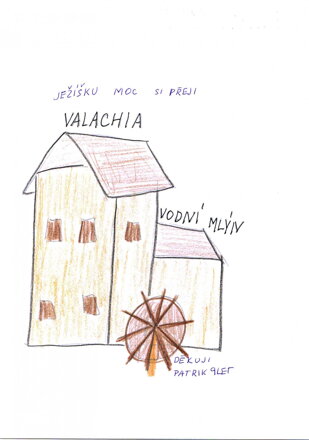 JEŽÍŠKU MOC SI PŘEJI
VALACHIA
VODNÍ MLÝN
DĚKUJI
PATRIK 9LET